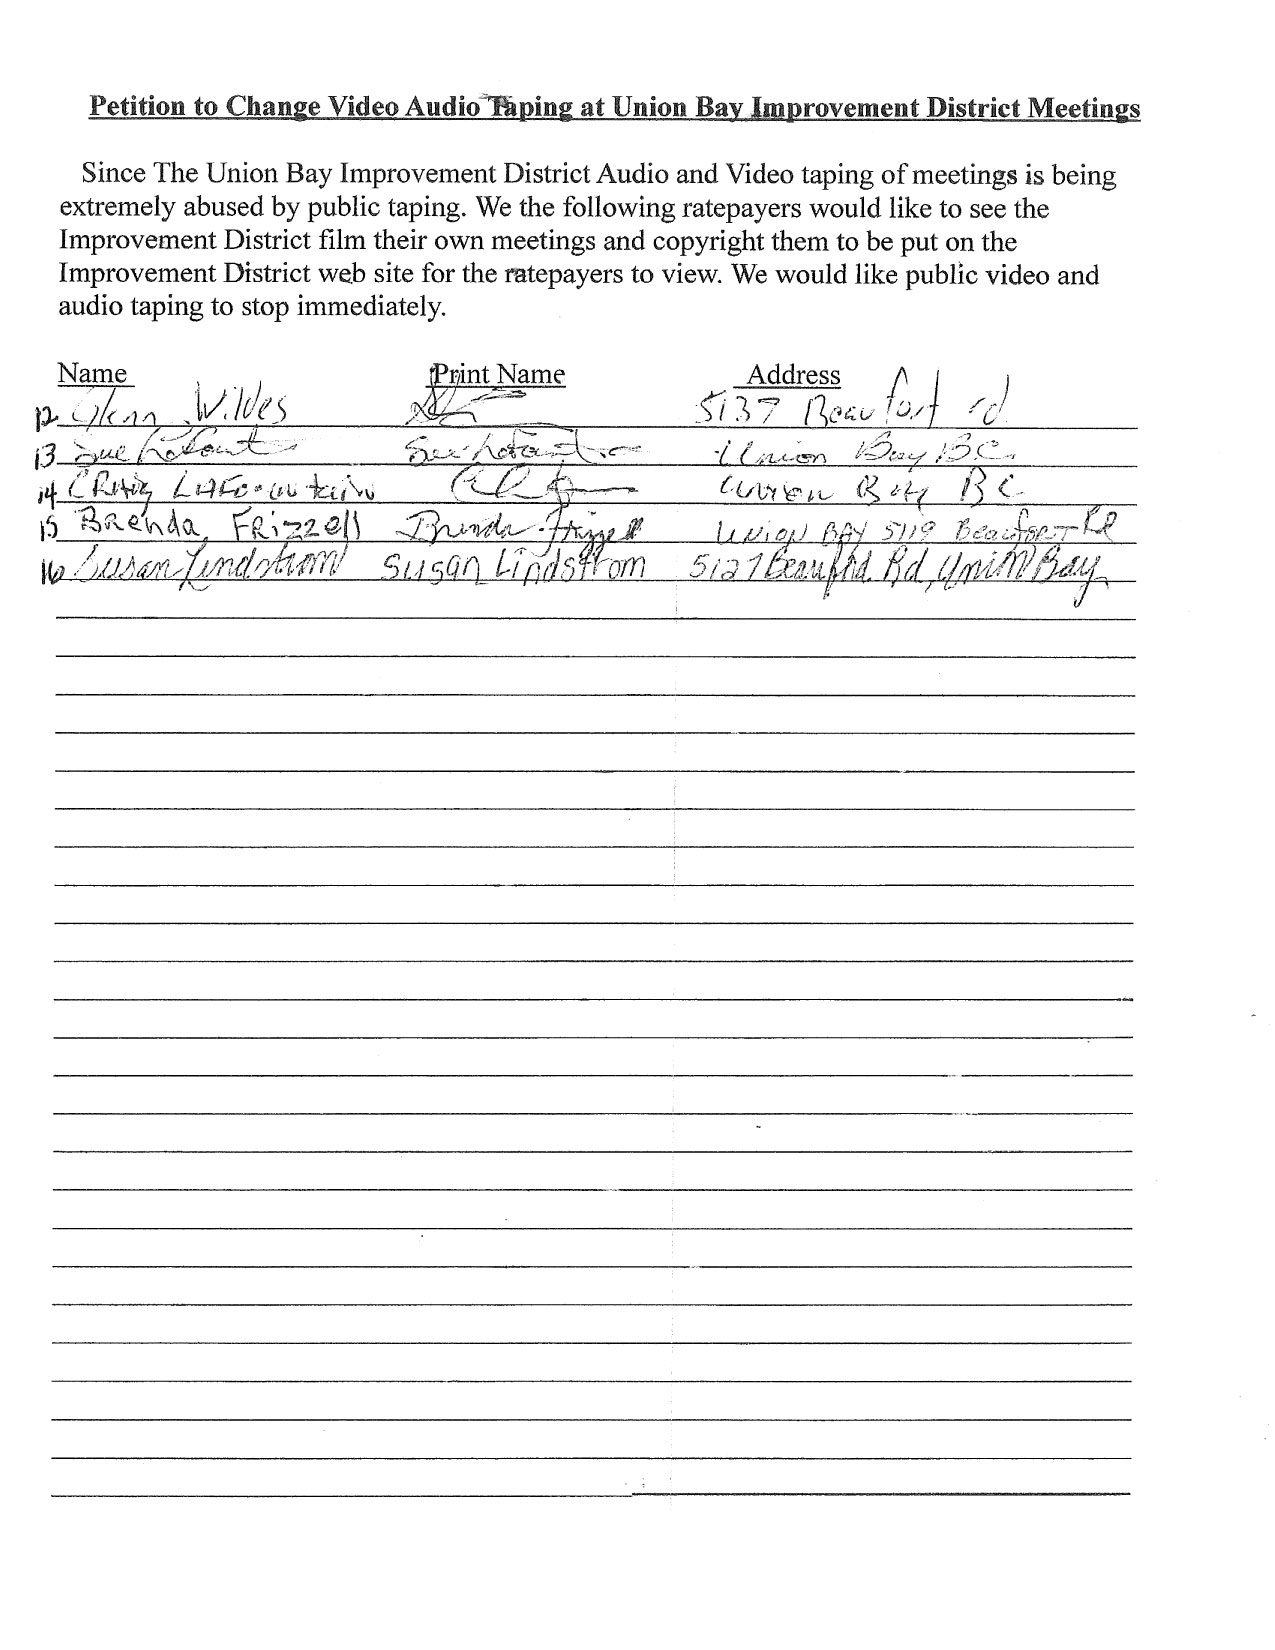 Petition to Change Video Audio Taping at Union Bay Improvement District Meetings
Since The Union Bay Improvement District Audio and Video taping of meetings is being
extremely abused by public taping. We the following ratepayers would like to see the
Improvement District film their own meetings and copyright them to be put on the
Improvement District web site for the ratepayers to view. We would like public video and
audio taping to stop immediately.
Name Print Name Address
12 Glenn Wildes 5137 Beaufort rd
13 Sue Sue Union Bay BC.
14 Craig Union Bay BC
15 Brenda Frizzell Brenda Frizzell Union Bay 5119 Beaufort Rd
16 Susan Lindstrom Susan Lindstrom 5127 Beaufort Rd, Union Bay